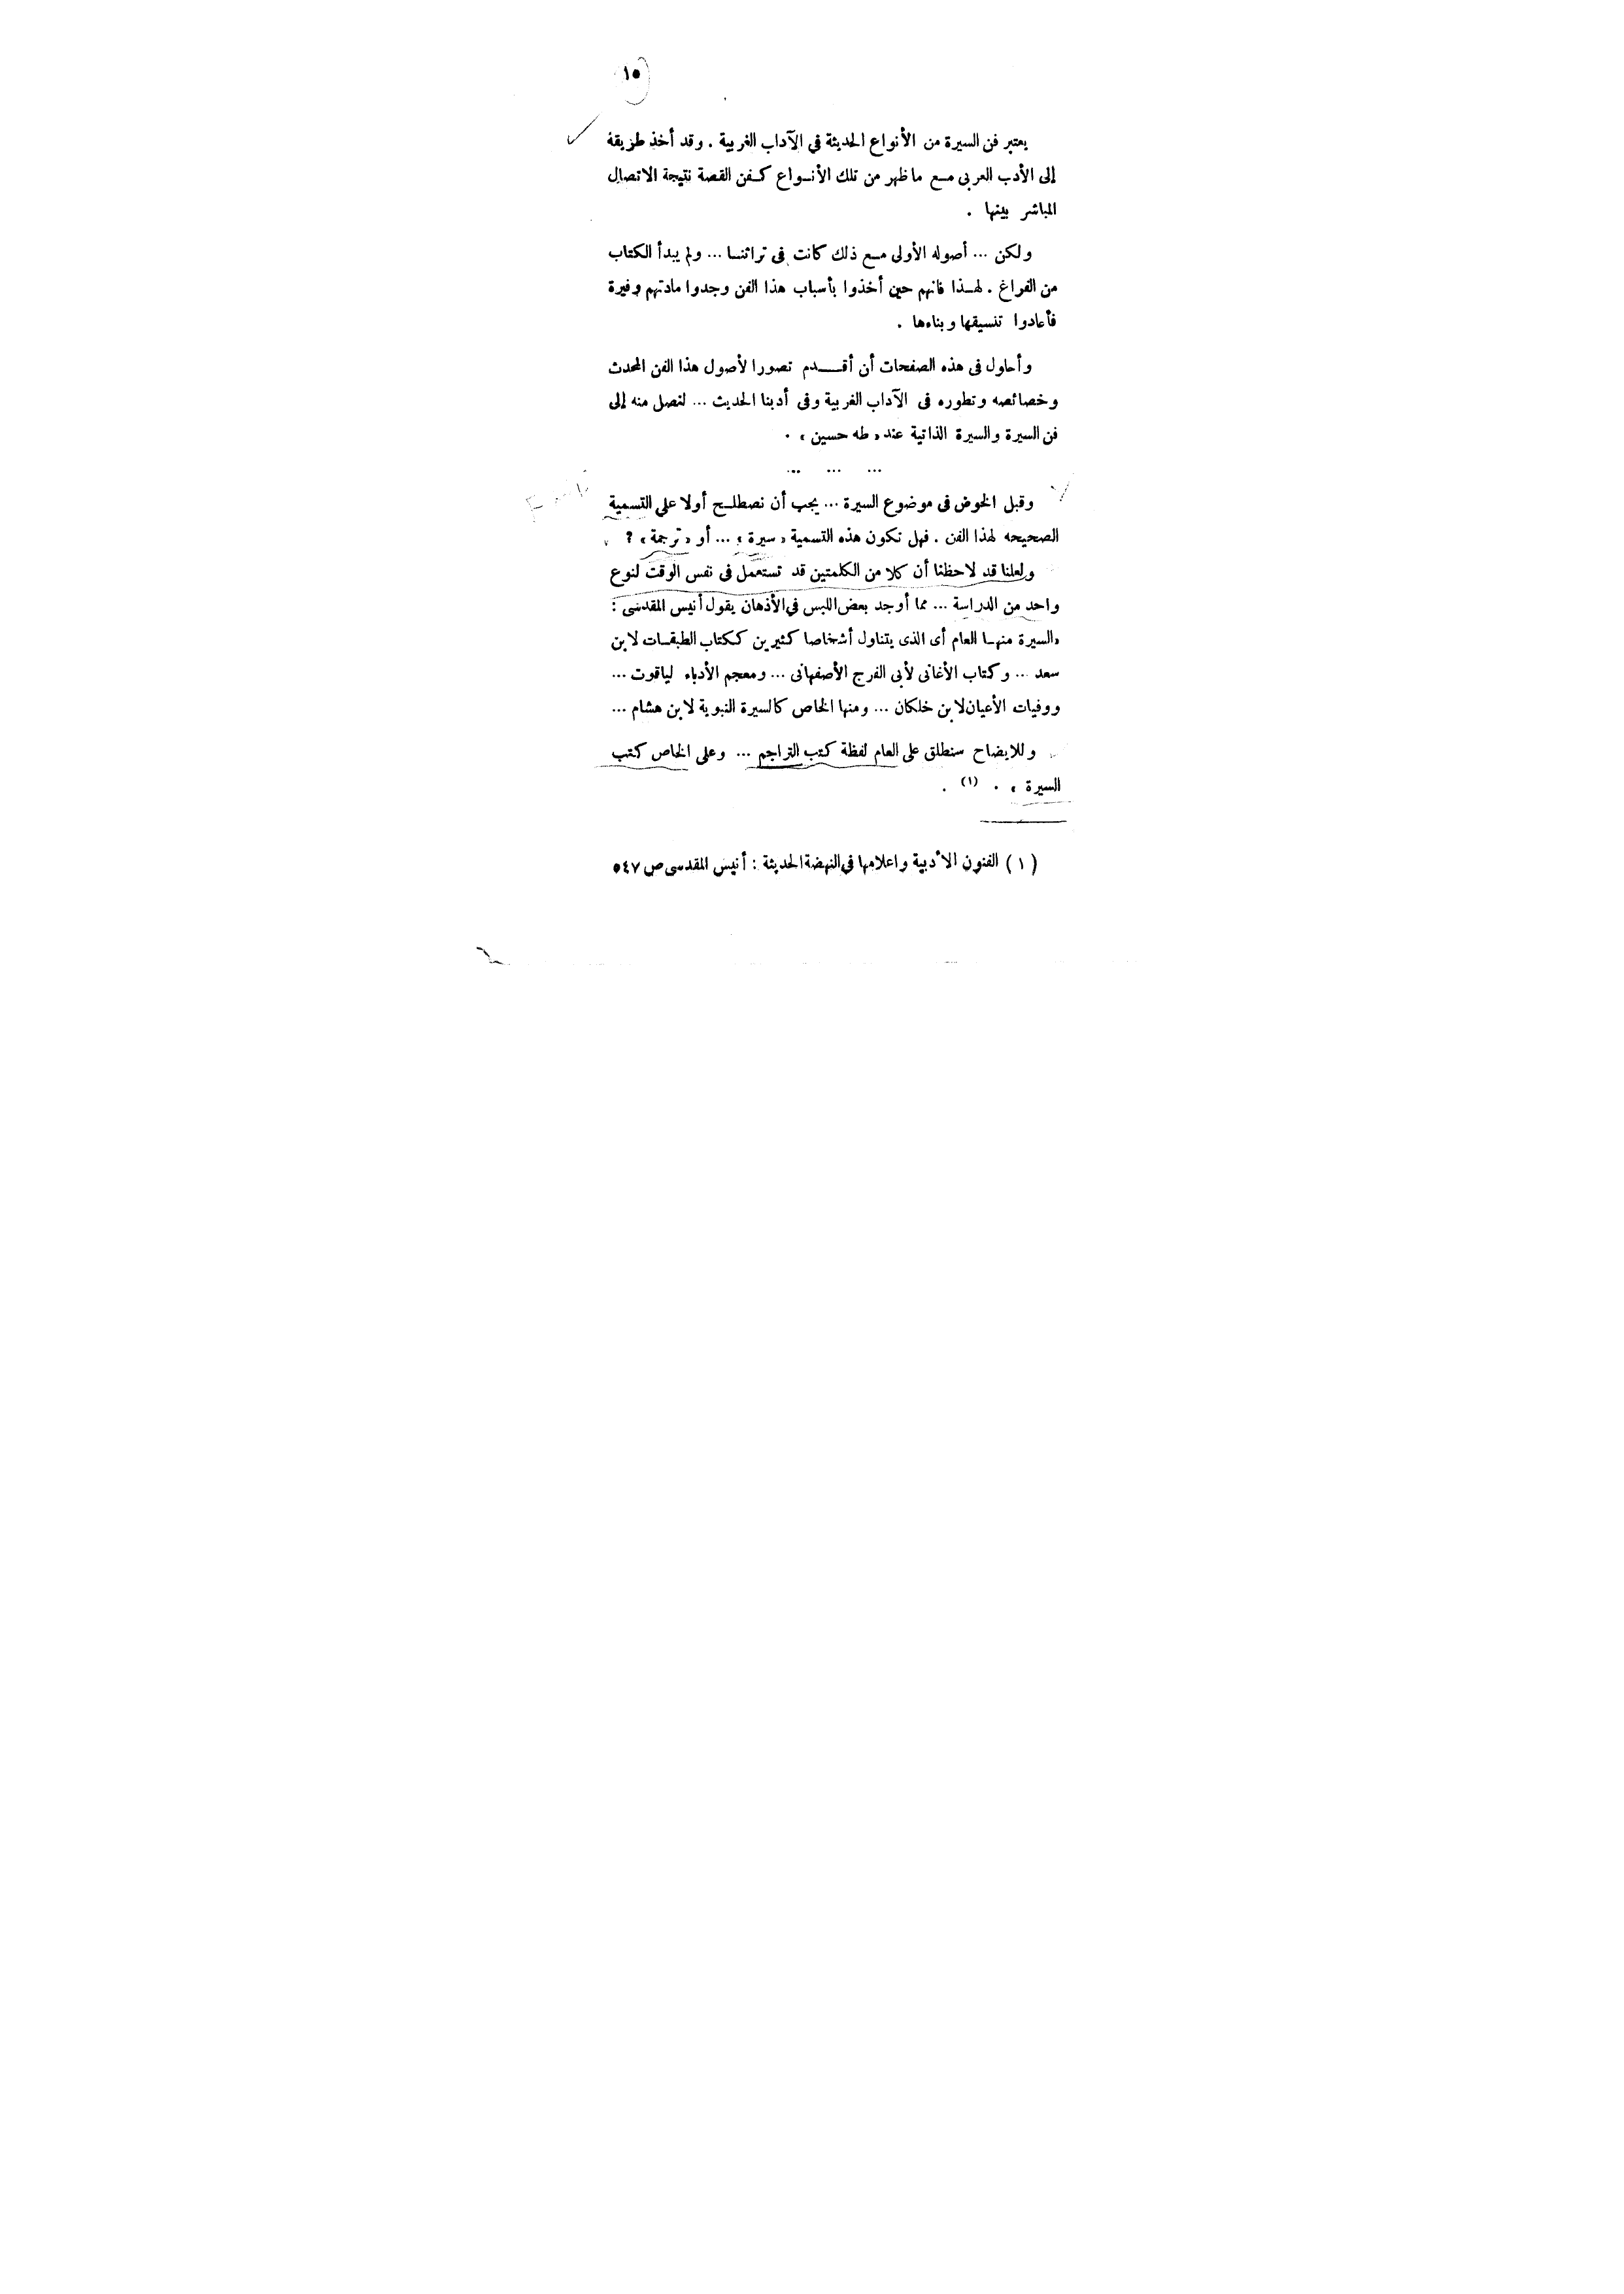 ١٥
يعتبر فن السيرة من الأنواع الحديثة في الآداب الغربية . وقد أخذ طريقة
إلى الأدب العربى مع ما ظهر من تلك الأنواع كفن القصة نتيجة الاتصال
المباشر بينها .
ولكن ... أصوله الأولى مع ذلك كانت فى تراثنا ... ولم يبدأ الكتاب
من الفراغ . لهذا فانهم حين أخذوا بأسباب هذا الفن وجدوا مادتهم وفيرة
فأعادوا تنسيقها وبناءها .
وأحاول فى هذه الصفحات أن أقدم تصورا لأصول هذا الفن المحدث
وخصائصه وتطوره فى الآداب الغربية وفى أدبنا الحديث ... لنصل منه إلى
فن السيرة والسيرة الذاتية عند « طه حسين » .
... ... ...
وقبل الخوض فى موضوع السيرة ... يجب أن نصطلح أولا على التسمية
الصحيحه لهذا الفن . فهل تكون هذه التسمية « سيرة » ... أو « ترجمة » ؟
ولعلنا قد لاحظنا أن كلا من الكلمتين قد تستعمل فى نفس الوقت لنوع
واحد من الدراسة ... مما أوجد بعض اللبس في الأذهان يقول أنيس المقدسى :
«السيرة منها العام أى الذى يتناول أشخاصا كثيرين ككتاب الطبقات لابن
سعد ... وكتاب الأغانى لأبى الفرج الأصفهانى ... ومعجم الأدباء لياقوت ...
ووفيات الأعيان لابن خلكان ... ومنها الخاص كالسيرة النبوية لابن هشام ...
وللايضاح سنطلق على العام لفظة كتب التراجم ... وعلى الخاص كتب
السيرة » . (١) .
(١) الفنون الأدبية واعلامها في النهضة الحديثة : أنيس المقدسى ص ٥٤٧